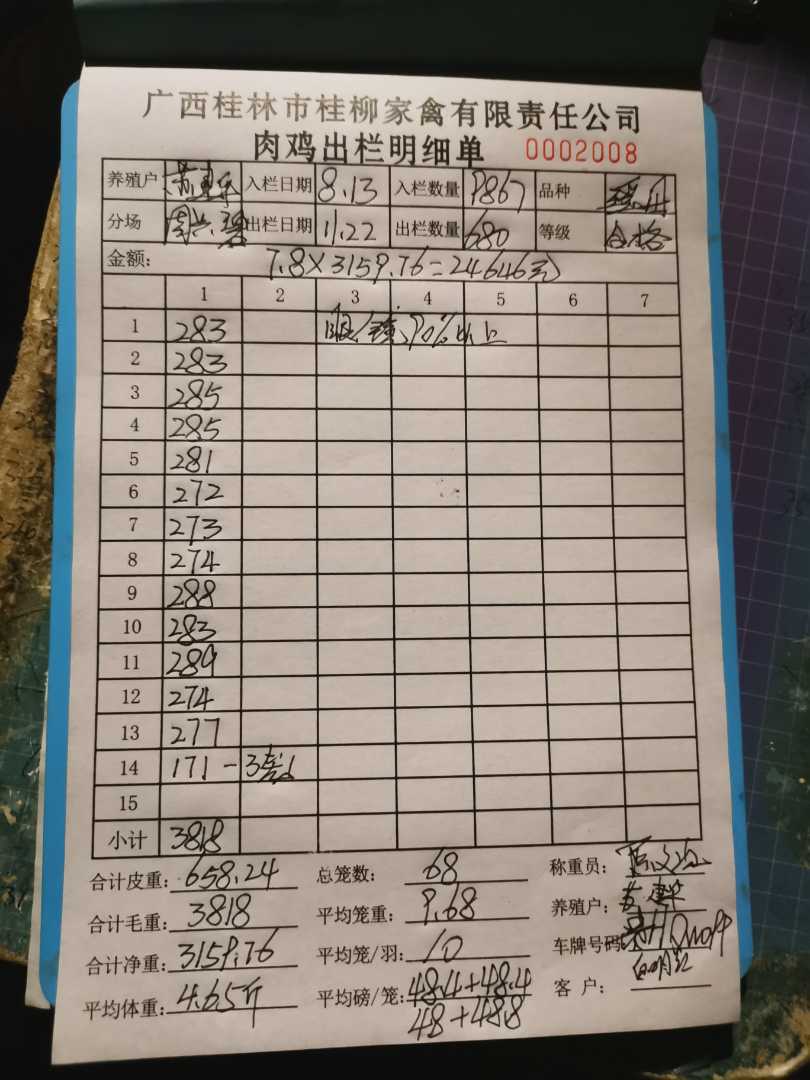 广西桂林市桂柳家禽有限责任公司
肉鸡出栏明细单 0002008
养殖户 入栏日期 8.13 入栏数量 9867 品种
分场 出栏日期 11.22 出栏数量 680 等级 合格
金额: 7.8×3159.76=24646元
1 2 3 4 5 6 7
1 283 90%以上
2 283
3 285
4 285
5 281
6 272
7 273
8 274
9 288
10 283
11 289
12 274
13 277
14 171-3
15
小计 3818
合计皮重: 658.24 总笼数: 68 称重员:
合计毛重: 3818 平均笼重: 9.68 养殖户:
合计净重: 3159.76 平均笼/羽: 10 车牌号码:
平均体重: 4.65斤 平均磅/笼: 48.4+48.4 客户:
48+48.8